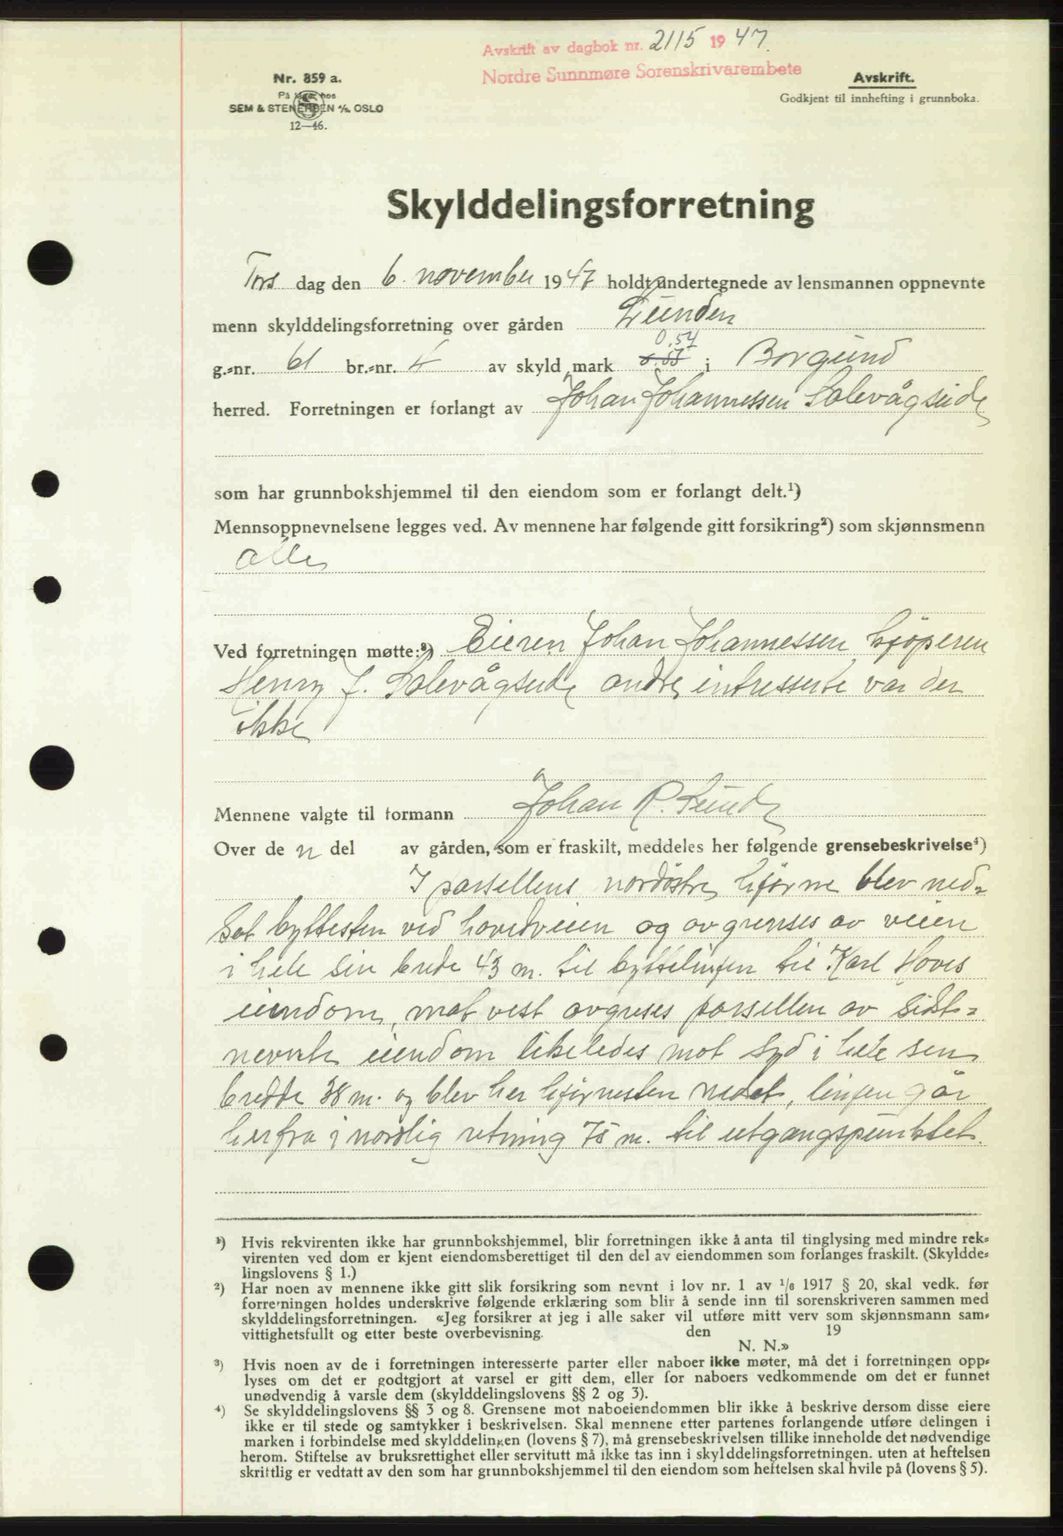 Avskrift av dagbok nr. 2115 1947.
Nordre Sunnmøre Sorenskrivarembete
Nr. 859 a.
På lager hos
SEM & STENERSEN A/S, OSLO
12—46.
Avskrift.
Godkjent til innhefting i grunnboka.
Skylddelingsforretning
Tors dag den 6. november 1947 holdt undertegnede av lensmannen oppnevnte
menn skylddelingsforretning over gården Lunden
0.54
g.=nr. 61 br.=nr. 4 av skyld mark i Borgund
herred. Forretningen er forlangt av Johan Johannessen Solevågseide
som har grunnbokshjemmel til den eiendom som er forlangt delt.¹)
Mennsoppnevnelsene legges ved. Av mennene har følgende gitt forsikring²) som skjønnsmenn
alle
Ved forretningen møtte:³) Eieren Johan Johannessen kjøperen
Henry J. Solevågseide andre intresserte var der
ikke
Mennene valgte til formann Johan R. Sunde
Over de n del av gården, som er fraskilt, meddeles her følgende grensebeskrivelse⁴)
I parsellens nordøstre hjørne blev ned=
sat byttesten ved hovedveien og avgrenses av veien
i hele sin brede 43 m. til byttelinjen til Karl Hoves
eiendom, mot vest avgreses parsellen av sidst=
nevnte eiendom likeledes mot syd i hele sen
bredde 38 m. og blev her hjørnesten nedsat, linjen går
herfra i nordlig retning 75 m. til utgangspunktet.
¹) Hvis rekvirenten ikke har grunnbokshjemmel, blir forretningen ikke å anta til tinglysing med mindre rek=
virenten ved dom er kjent eiendomsberettiget til den del av eiendommen som forlanges fraskilt. (Skyldde=
lingslovens § 1.)
²) Har noen av mennene ikke gitt slik forsikring som nevnt i lov nr. 1 av 1/6 1917 § 20, skal vedk. før
forretningen holdes underskrive følgende erklæring som blir å sende inn til sorenskriveren sammen med
skylddelingsforretningen. «Jeg forsikrer at jeg i alle saker vil utføre mitt verv som skjønnsmann sam=
vittighetsfullt og etter beste overbevisning. den 19
N. N.»
³) Hvis noen av de i forretningen interesserte parter eller naboer ikke møter, må det i forretningen opp=
lyses om det er godtgjort at varsel er gitt dem, eller for naboers vedkommende om det er funnet
unødvendig å varsle dem (skylddelingslovens §§ 2 og 3).
⁴) Se skylddelingslovens §§ 3 og 8. Grensene mot naboeiendommen blir ikke å beskrive dersom disse eiere
ikke er til stede og samtykker i beskrivelsen. Skal mennene etter partenes forlangende utføre delingen i
marken i forbindelse med skylddelingen (lovens § 7), må grensebeskrivelsen tillike inneholde det nødvendige
herom. Stiftelse av bruksrettighet eller servitutt må ikke tas inn i skylddelingsforretningen. uten at heftelsen
skriftlig er vedtatt av den som har grunnbokshjemmel til den eiendom som heftelsen skal hvile på (lovens § 5).